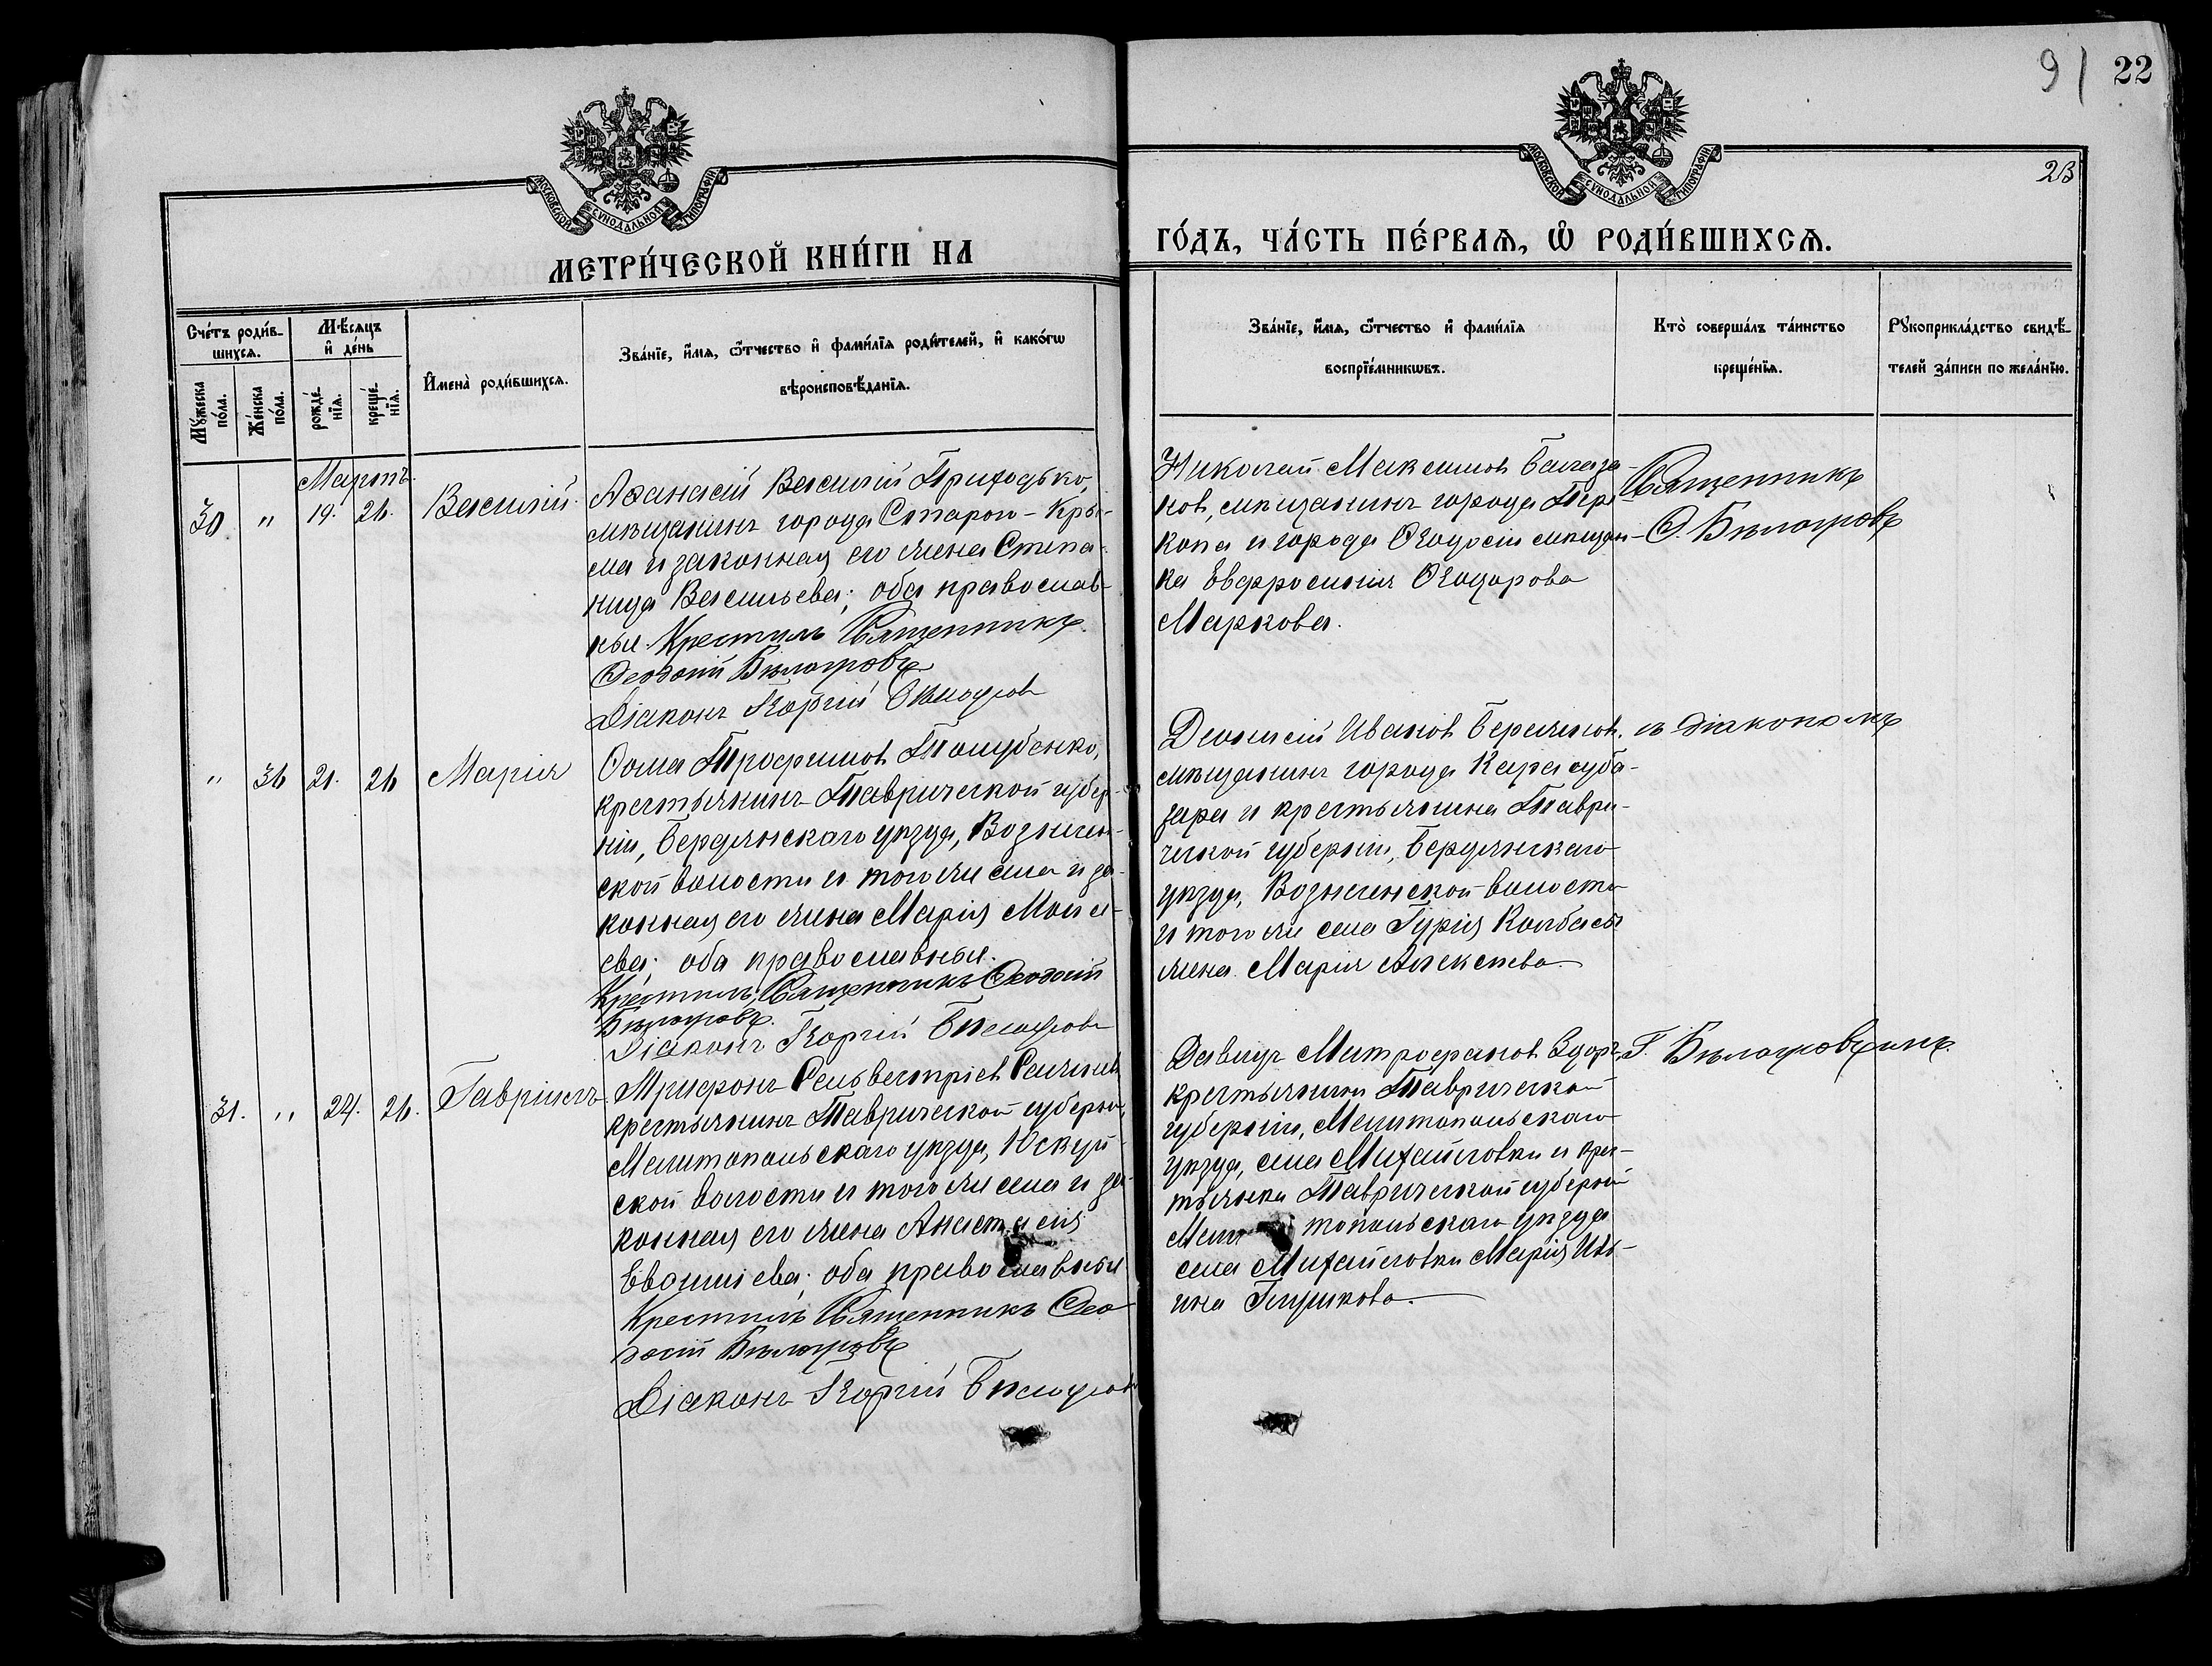 91 22
МОСКОВСКОЙ СѴНОДАЛЬНОЙ ТИПОГРАФІИ
МОСКОВСКОЙ СѴНОДАЛЬНОЙ ТИПОГРАФІИ
23
МЕТРИ́ЧЕСКОЙ КНИ́ГИ НА
ГО́ДЪ, ЧА́СТЬ ПЕ́РВАѦ, Ѡ҆ РОДИ́ВШИХСѦ.
Сче́тъ роди́в-
шихсѧ.
Мѣ́сѧцъ
и҆ де́нь
Мꙋ́жеска
по́ла.
Же́нска
по́ла.
рожде́-
нїѧ.
креще́-
нїѧ.
И҆мена̀ роди́вшихсѧ.
Зва́нїе, и҆́мѧ, ѻ҆́тчество и҆ фами́лїѧ роди́телей, и҆ како́гѡ
вѣроисповѣ́данїѧ.
Зва́нїе, и҆́мѧ, ѻ҆́тчество и҆ фами́лїѧ
воспрїе́мникѡвъ.
Кто̀ соверша́лъ та́инство
креще́нїѧ.
Рꙋкоприкла́дство свидѣ́-
телей за́писи по жела́нїю.
Мартъ.
30 " 19. 26. Василій.
Аѳанасій Василій Приходько,
мѣщанинъ города Старого-Кры-
ма и законная его жена Степа-
нида Васильева; оба православ-
ные. Крестилъ Священникъ
Ѳеодосій Бѣлоусовъ
Діаконъ Георгій Бѣлоусовъ
Николай Максимов
ков, мѣщанинъ города Пере-
копа и города Ѳеодосіи мѣщан-
ка Евфросинія Ѳеодорова
Маркова.
Священникъ
Ѳ. Бѣлоусовъ
" 36 21. 26 Марія
Ѳома Трофимов Толубенко,
крестьянинъ Таврической губер-
ніи, Бердянскаго уѣзда, Вознесен-
ской волости и того же села и за-
конная его жена Марія Моисе-
ева; оба православные.
Крестилъ Священникъ Ѳеодосій
Бѣлоусовъ.
Діаконъ Георгій Бѣлоусовъ
Діонисій Иванов
мѣщанинъ города Карасуба-
зара и крестьянина Таври-
ческой губерніи, Бердянскаго
уѣзда, Вознесенской волости
и того же села Гурія Колбасы
жена Марія Алексѣева.
съ діакономъ
31. " 24. 26. Гавріилъ.
Трифонъ Сельвестріев
крестьянинъ Таврической губерніи,
Мелитопольскаго уѣзда, Юскуй-
ской волости и того же села и за-
конная его жена Анастасія
Евфиміева; оба православные
Крестилъ Священникъ Ѳео-
досій Бѣлоусовъ
Діаконъ Георгій Бѣлоусовъ
Давидъ Митрофанов
крестьянин Таврической
губерніи, Мелитопольскаго
уѣзда, села Михайловки и крес-
тьянка Таврической губерніи
Мелитопольскаго уѣзда
села Михайловки Марія Иль-
ина Глушкова.
Г. Бѣлоусовымъ.